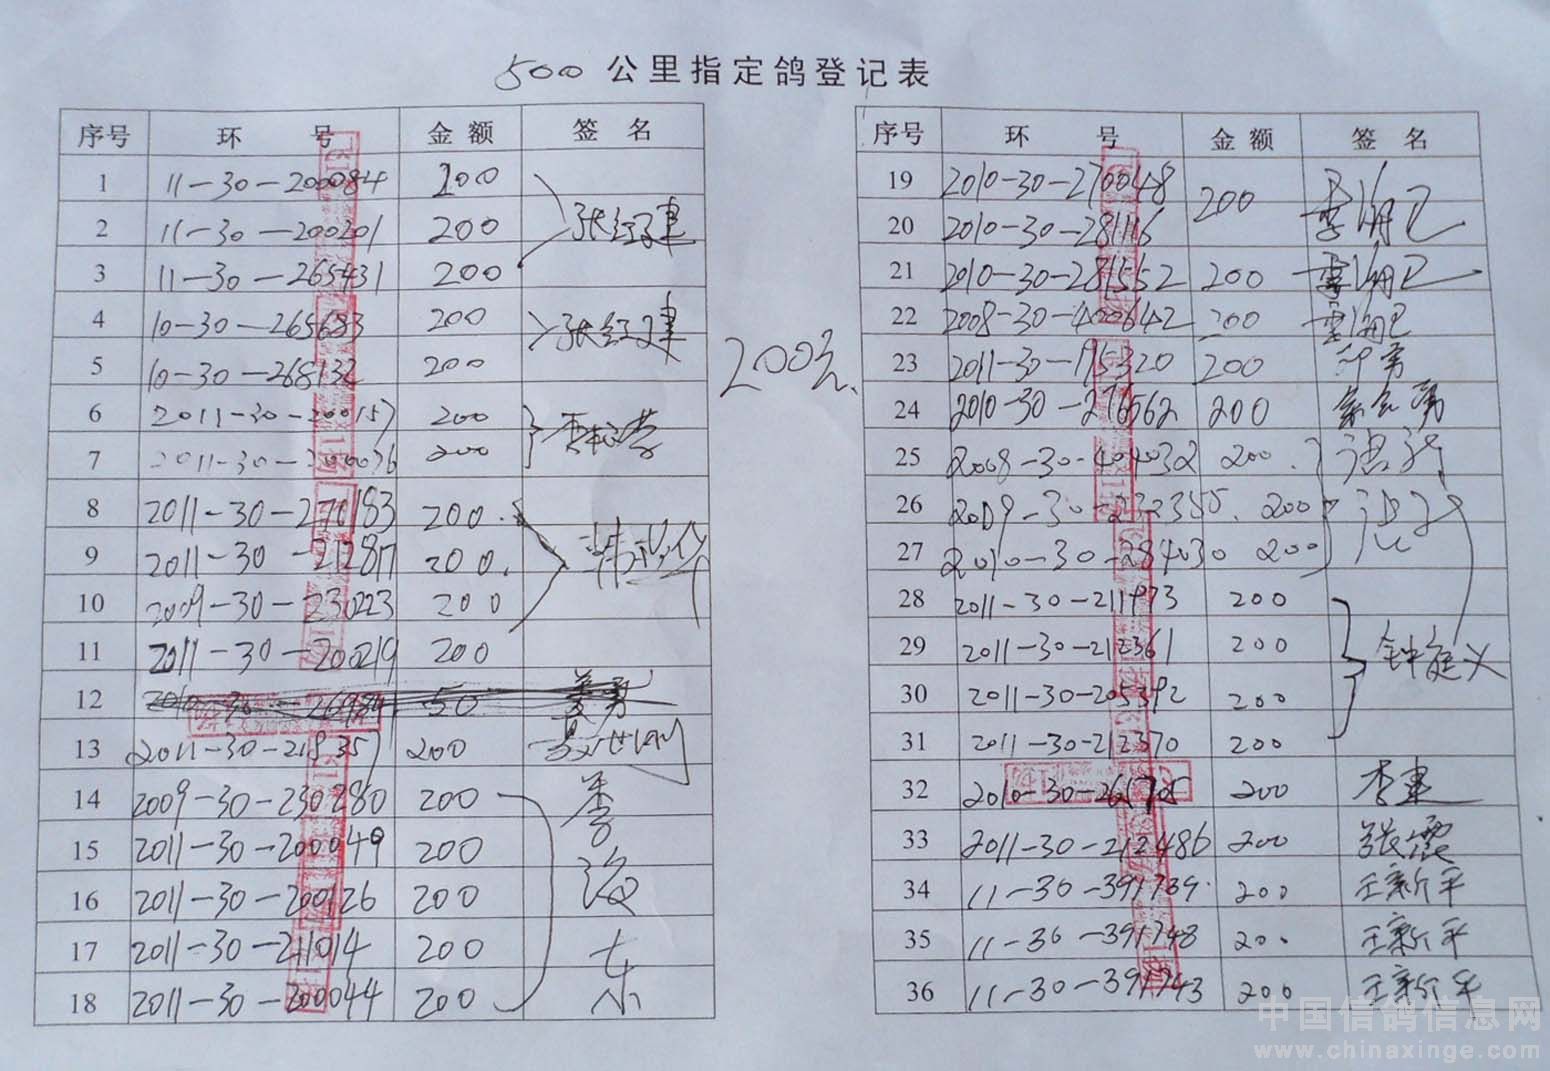 500 公里指定鸽登记表
序号 环 号 金额 签 名
1 11-30-200084 200
2 11-30-200201 200 张红建
3 11-30-265431 200
4 10-30-265683 200 张红建
5 10-30-268132 200
6 2011-30-200157 200
7 2011-30-200036 200
8 2011-30-270183 200.
9 2011-30-212817 200.
10 2009-30-230223 200
11 2011-30-200219 200
12
13 2011-30-218357 200
14 2009-30-230280 200 李
15 2011-30-200049 200
16 2011-30-200126 200 海
17 2011-30-211014 200 东
18 2011-30-200044 200
200元.
序号 环 号 金额 签 名
19 2010-30-270048 200
20 2010-30-281116
21 2010-30-281552 200
22 2008-30-400642 200
23 2011-30-195320 200
24 2010-30-276562 200
25 2008-30-404032 200.
26 2009-30-232355. 200
27 2010-30-284030 200
28 2011-30-211973 200
29 2011-30-212361 200 钟庭义
30 2011-30-205392 200
31 2011-30-212370 200
32 200 李建
33 2011-30-212486 200 张震
34 11-30-391739. 200 王新平
35 11-30-391748 200 王新平
36 11-30-391743 200 王新平
中国信鸽信息网
www.chinaxinge.com